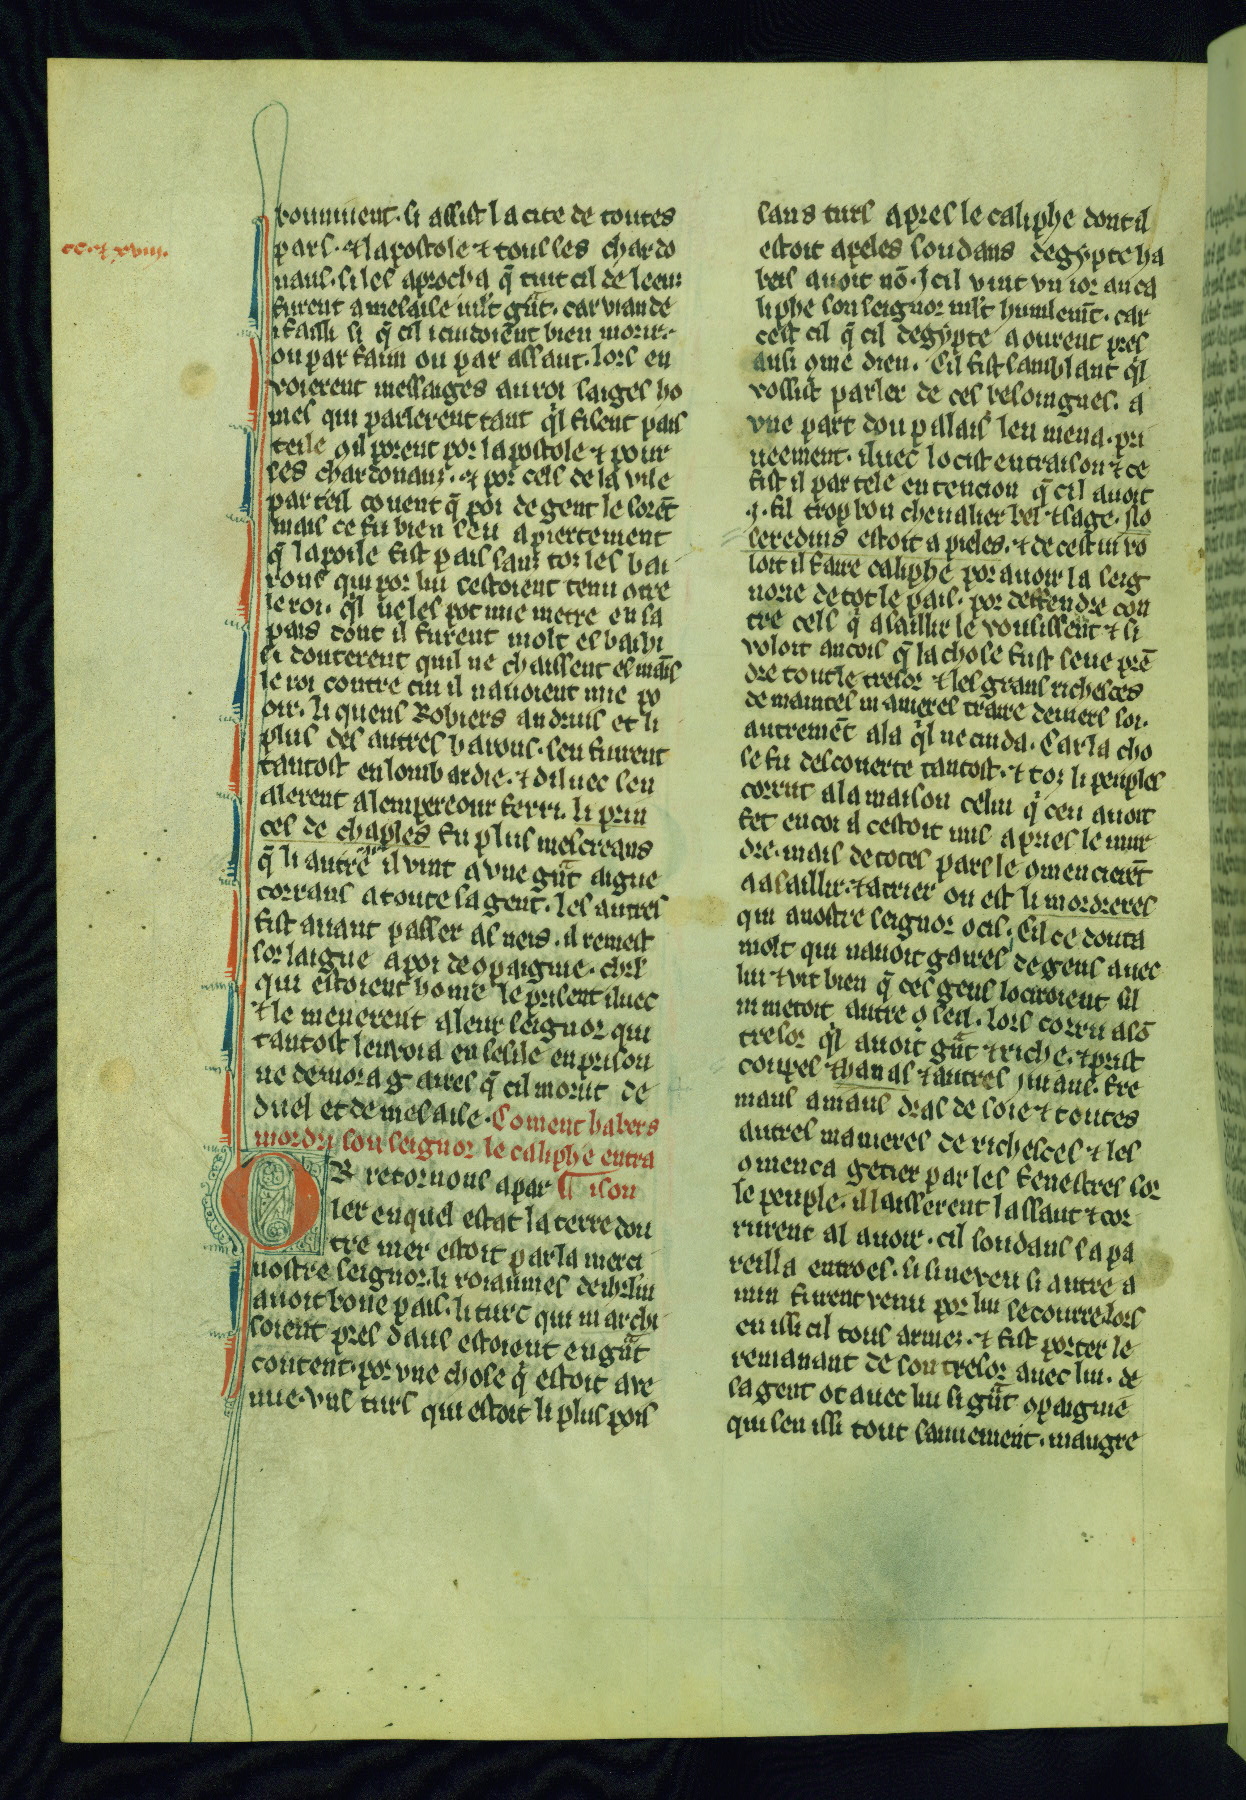 cc.⁊ xviii.
bonnuent. si assist la cite de toutes
pars. ⁊ lapostole ⁊ tous les chardo
naus. si les aprocha q̃ tuit cil de leenz
furent a mesaise mlt gñt. car viande
i failli si q̃ cil i cuidoient bien morir
ou par faim ou par assaut. lors en
voierent messaiges au roi saiges ho
mes qui parlerent tant ql fisent pais
tele 9il porent por lapostole ⁊ pour
les chardonauz. ⁊ por cels de la vile
par teil covent q̃ poi de gent le sorẽt
mais ce fu bien seu apiertement
q̃ lapoile fist pais sanz toz les ba
rons qui por lui sestoient tenu otre
le roi. ql ne les pot mie metre en sa
pais dont il furent molt esbaihi
si douterent quil ne chaissent es mãs
le roi contre cui il navoient mie po
oir. li quens Robiers andruis et li
plus des autres barons. sen fuirent
tantost en lombardie. ⁊ diluec sen
alerent a lempereour ferri. li prin
ces de chaples fu plus mescreans
q̃ li autre il vint a vne gñt aigue
corrans a toute sa gent. les autres
fist avant passer as neis. il remest
sor laigue a poi de 9paignie. chil
qui estoient home le prisent iluec
⁊ le menerent a leur seignor qui
tantost lenvoia en sesile en prison
ne demora gaires q̃ cil morut de
duel et de mesaise. Coment habeis
mordri son seignor le caliphe en tra
ison
Or retornons a par
ler en quel estat la terre dou
tre mer estoit par la merci
nostre seignor. li roiaumes de ihrlm
avoit bone pais. li turc qui marchi
soient pres daus estoient en gñt
content. por vne chose q̃ estoit ave
nue. vns turs qui estoit li plus pois
sans turs apres le caliphe dont il
estoit apeles soudans degypte ha
beis avoit nõ. Jcil vint vn ior au ca
liphe son seignor mlt humlemẽt. car
cest cil q̃ cil degypte aourent pres
ausi 9me dieu. Cil fist samblant ql
vossist parler de ces besoingnes. a
vne part dou palais len mena. pri
veement. iluec locist en traison ⁊ ce
fist il par tele entencion q̃ cil avoit
.j. fil trop bon chevalier bel ⁊ sage. No
seredins estoit apieles. ⁊ de cestui vo
loit il faire caliphe por avoir la seig
norie de tot le pais. por deffendre con
tre cels q̃ asaillir le vousissent ⁊ si
voloit ancois q̃ la chose fust seue prẽ
dre tout le tresor ⁊ les grans richesces
de maintes manieres traire deviers soi.
autremẽt ala ql ne cuida. Car la cho
se fu descouerte tantost. ⁊ toz li peuples
corrut a la maison celui q̃ ceu avoit
fet encor il cestoit mis apries le mur
dre. mais de totes pars le 9mencierẽt
a asaillir. ⁊ a crier ou est li mordreres
qui a nostre seignor ocis. Cil ce douta
molt qui navoit gaires de gens avec
lui ⁊ vit bien q̃ ces gens lociroient sil
ni metoit autre 9seil. lors corru a sõ
tresor ql avoit gñt ⁊ riche. ⁊ prist
coupes ⁊ hanas ⁊ autres
maus amaus dras de soie ⁊ toutes
autres manieres de richesces ⁊ les
9menca a getier par les fenestres sor
le peuple. il laissierent lassaut ⁊ cor
rurent al avoir. cil soudans sapa
reilla entroes. si si neveu si autre a
min furent venu por lui secourre. lors
en issi cil tous armez. ⁊ fist porter le
remanant de son tresor avec lui. de
sa gent ot avec lui si gñt 9paignie
qui sen issi tout sauuement. maugre